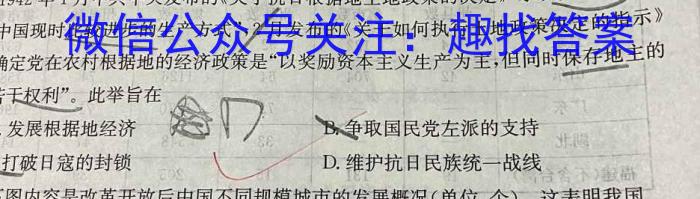 1942年1月中共中央发布的《关于抗日根据地土地政策的决定》
中国现时
进步的生产方式”，2月发布的《关于如何执行土地政策决定的指示》
微信公众号关注：趣找答案
确定党在农村根据地的经济政策是“以奖励资本主义生产为主，但同时保存地主的
若干权利”。此举旨在
发展根据地经济
B. 争取国民党左派的支持
打破日寇的封锁
D. 维护抗日民族统一战线
下图内容是改革开放后中国不同规模城市的发展概况（单位：个），这表明我国